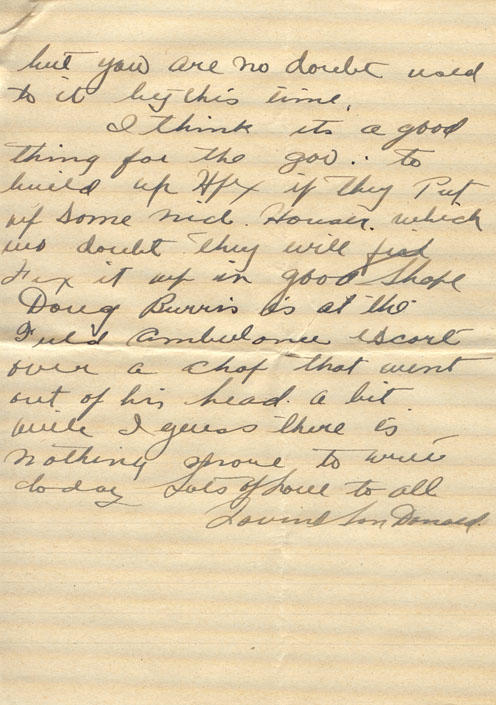 but you are no doubt used
to it by this time.
I think its a good
thing for the gov.. to
build up Hfx if they Put
up Some nice Houses. which
no doubt they will
Fix it up in good Shape
Doug Burris is at the
Field ambulance escort
over a chap that went
out of his head. a bit.
well I guess there is
nothing more to write
today Lots of Love to all
Loving Son Donald.